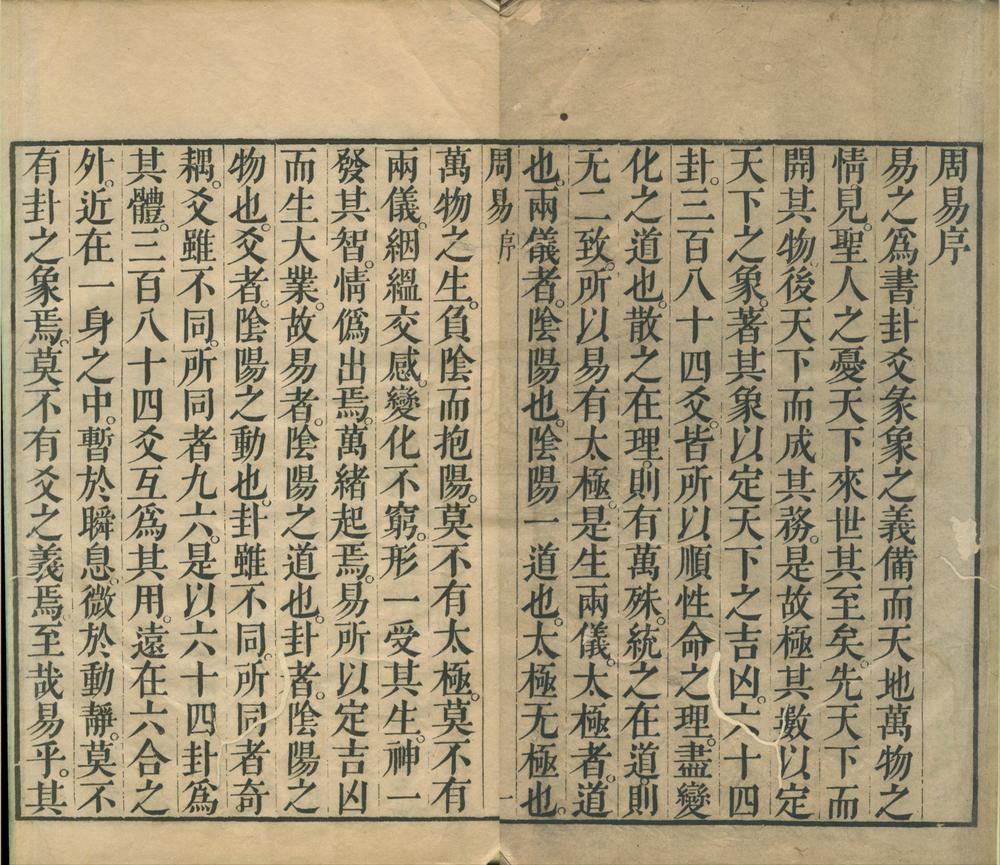 周易序
易之爲書卦爻彖象之義備而天地萬物之
情見。聖人之憂天下來世其至矣。先天下而
開其物後天下而成其務。是故極其數以定
天下之象。著其象以定天下之吉凶。六十四
卦。三百八十四爻。皆所以順性命之理。盡變
化之道也。散之在理。則有萬殊。統之在道則
无二致。所以易有太極。是生兩儀。太極者。道
也。兩儀者。陰陽也。陰陽一道也。太極无極也。
周易 序 一
萬物之生。負陰而抱陽。莫不有太極。莫不有
兩儀。絪縕交感。變化不窮。形一受其生。神一
發其智。情僞出焉。萬緖起焉。易所以定吉凶
而生大業。故易者。陰陽之道也。卦者。陰陽之
物也。爻者。陰陽之動也。卦雖不同。所同者奇
耦。爻雖不同。所同者九六。是以六十四卦爲
其體。三百八十四爻互爲其用。遠在六合之
外。近在一身之中。暫於瞬息。微於動靜。莫不
有卦之象焉。莫不有爻之義焉。至哉易乎。其